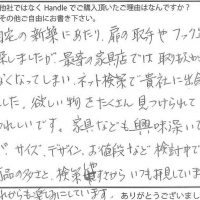 他社ではなく Handle でご購入頂いたご理由はなんですか？
その他ご自由にお書き下さい。
自宅の新築にあたり、扉の取手やフックを
探しましたが最寄の家具店では取り扱か
なくなってしまい、ネット検索で貴社に出会
した。欲しい物をたくさん見つけられて
うれしいです。家具なども興味深いで
サイズ、デザイン、お値段など検討中で
品の多さと、検索しやすさからいつも拝見していま
れからも楽しみにしています。
ありがとうございまし